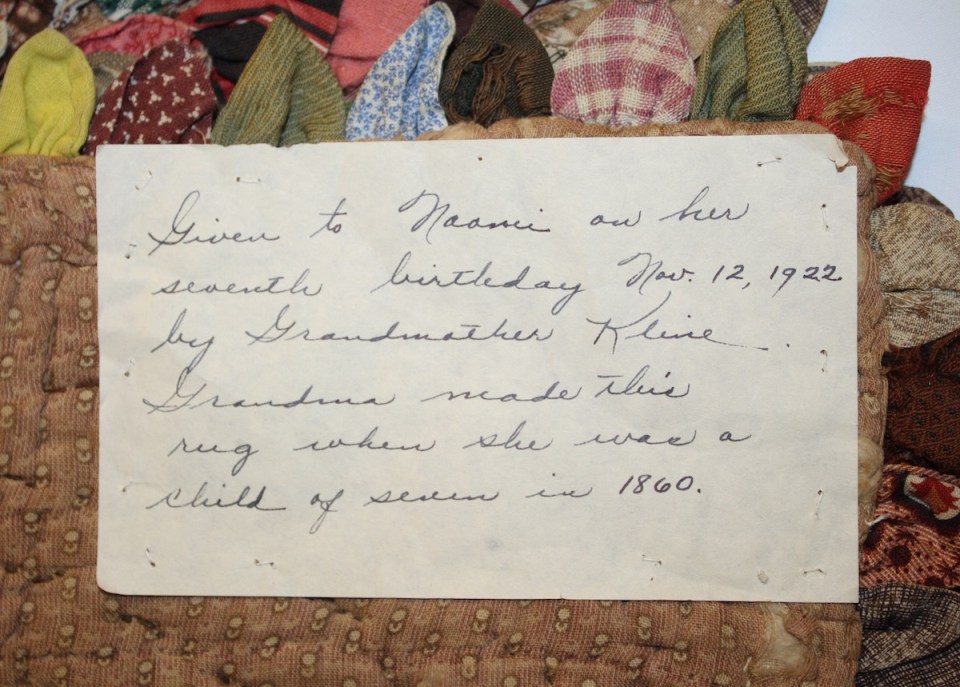 Given to Naomi on her
seventh birthday Nov. 12, 1922
by Grandmother Kline.
Grandma made this
rug when she was a
child of seven in 1860.